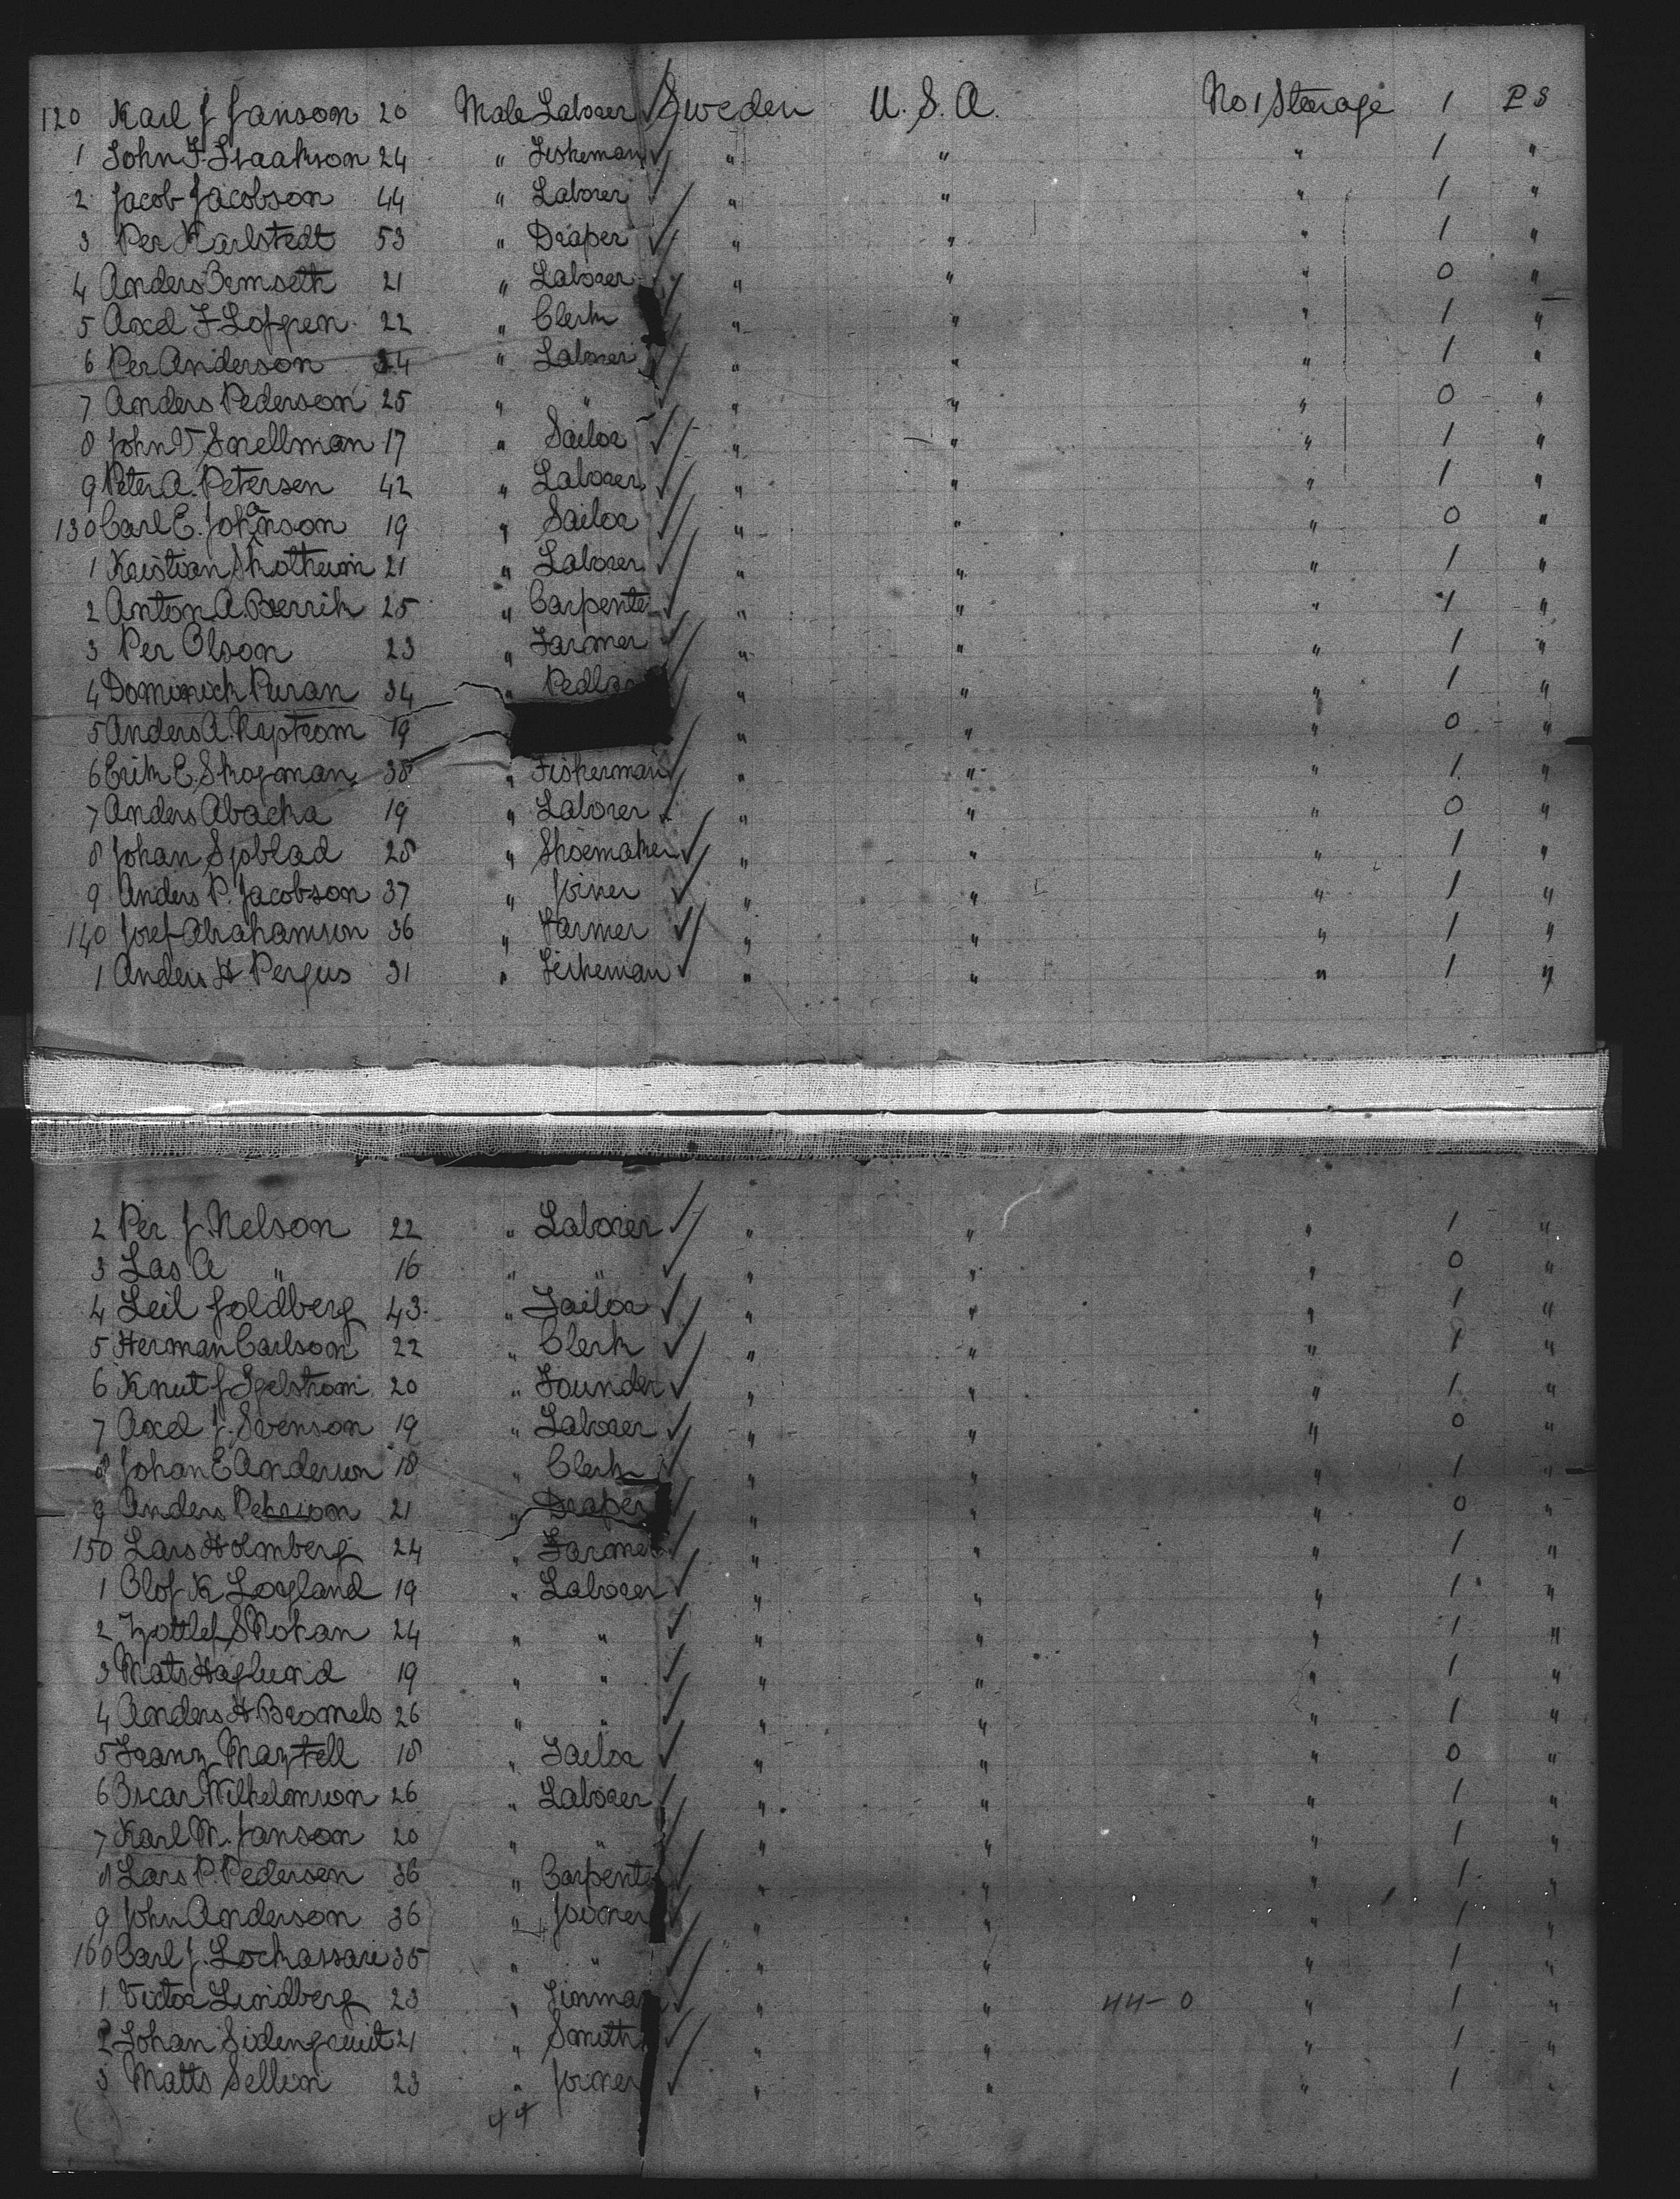 120 Karl J Janson 20 Male Laborer Sweden U. S. A. No 1 Storage 1 P S
1 John F. Isaakson 24 " Fiskeman " " " 1 "
2 Jacob Jacobson 44 " Laborer " " " 1 "
3 Per Karlstedt 53 " Draper " " " 1 "
4 Anders 21 " Laborer " " " 0 "
5 Axel F 22 " Clerk " " " 1 "
6 Per Anderson 34 " Laborer " " " 1 "
7 Anders Pederson 25 " " " " " 0 "
8 John V Snellman 17 " Sailor " " " 1 "
9 Peter A. Petersen 42 " Laborer " " " 1 "
130 Carl E. Johanson 19 " Sailor " " " 0 "
1 Kristian Skotheim 21 " Laborer " " " 1 "
2 Anton A. 25 " Carpente " " " 1 "
3 Per Olson 23 " Farmer " " " 1 "
4 Dominick Puran 34 " Pedlar " " " 1 "
5 Anders A. 19 " " " 0 "
6 Erik E. Skogman 38 " Fiskerman " " " 1 "
7 Anders Abacka 19 " Laborer " " " 0 "
8 Johan Sjoblad 28 " Shoemaker " " " 1 "
9 Anders P. Jacobson 37 " Joiner " " " 1 "
140 Josef Abrahamson 36 " Farmer " " " 1 "
1 Anders H Pergus 31 " Fiskeman " " " 1 "
2 Per J. Nelson 22 " Laborer " " " 1 "
3 Las A " 16 " " " " " 0 "
4 Leil Goldberg 43 " Tailor " " " 1 "
5 Herman Carlson 22 " Clerk " " " 1 "
6 Knut J Igelstrom 20 " Founder " " " 1 "
7 Axel J. Svenson 19 " Laborer " " " 0 "
8 Johan E Anderson 18 " Clerk " " " 1 "
9 Anders Pehrson 21 " Draper " " " 0 "
150 Lars Holmberg 24 " Farmer " " " 1 "
1 Olof K 19 " Laborer " " " 1 "
2 24 " " " " " 1 "
3 Mats Haglund 19 " " " " " 1 "
4 Anders H Bromels 26 " " " " " 1 "
5 Franz Maztell 18 " Tailor " " " 0 "
6 Oscar Wilhelmson 26 " Laborer " " " 1 "
7 Karl M. Janson 20 " " " " " 1 "
8 Lars P. Pedersen 36 " Carpente " " " 1 "
9 John Anderson 36 " Joiner " " " 1 "
160 Carl J. 35 " " " " " 1 "
1 Victor Lindberg 23 " Tinman " " 44-0 " 1 "
2 Johan 21 " Smith " " " 1 "
3 Matts Sellin 23 " Joiner " " " 1 "
44